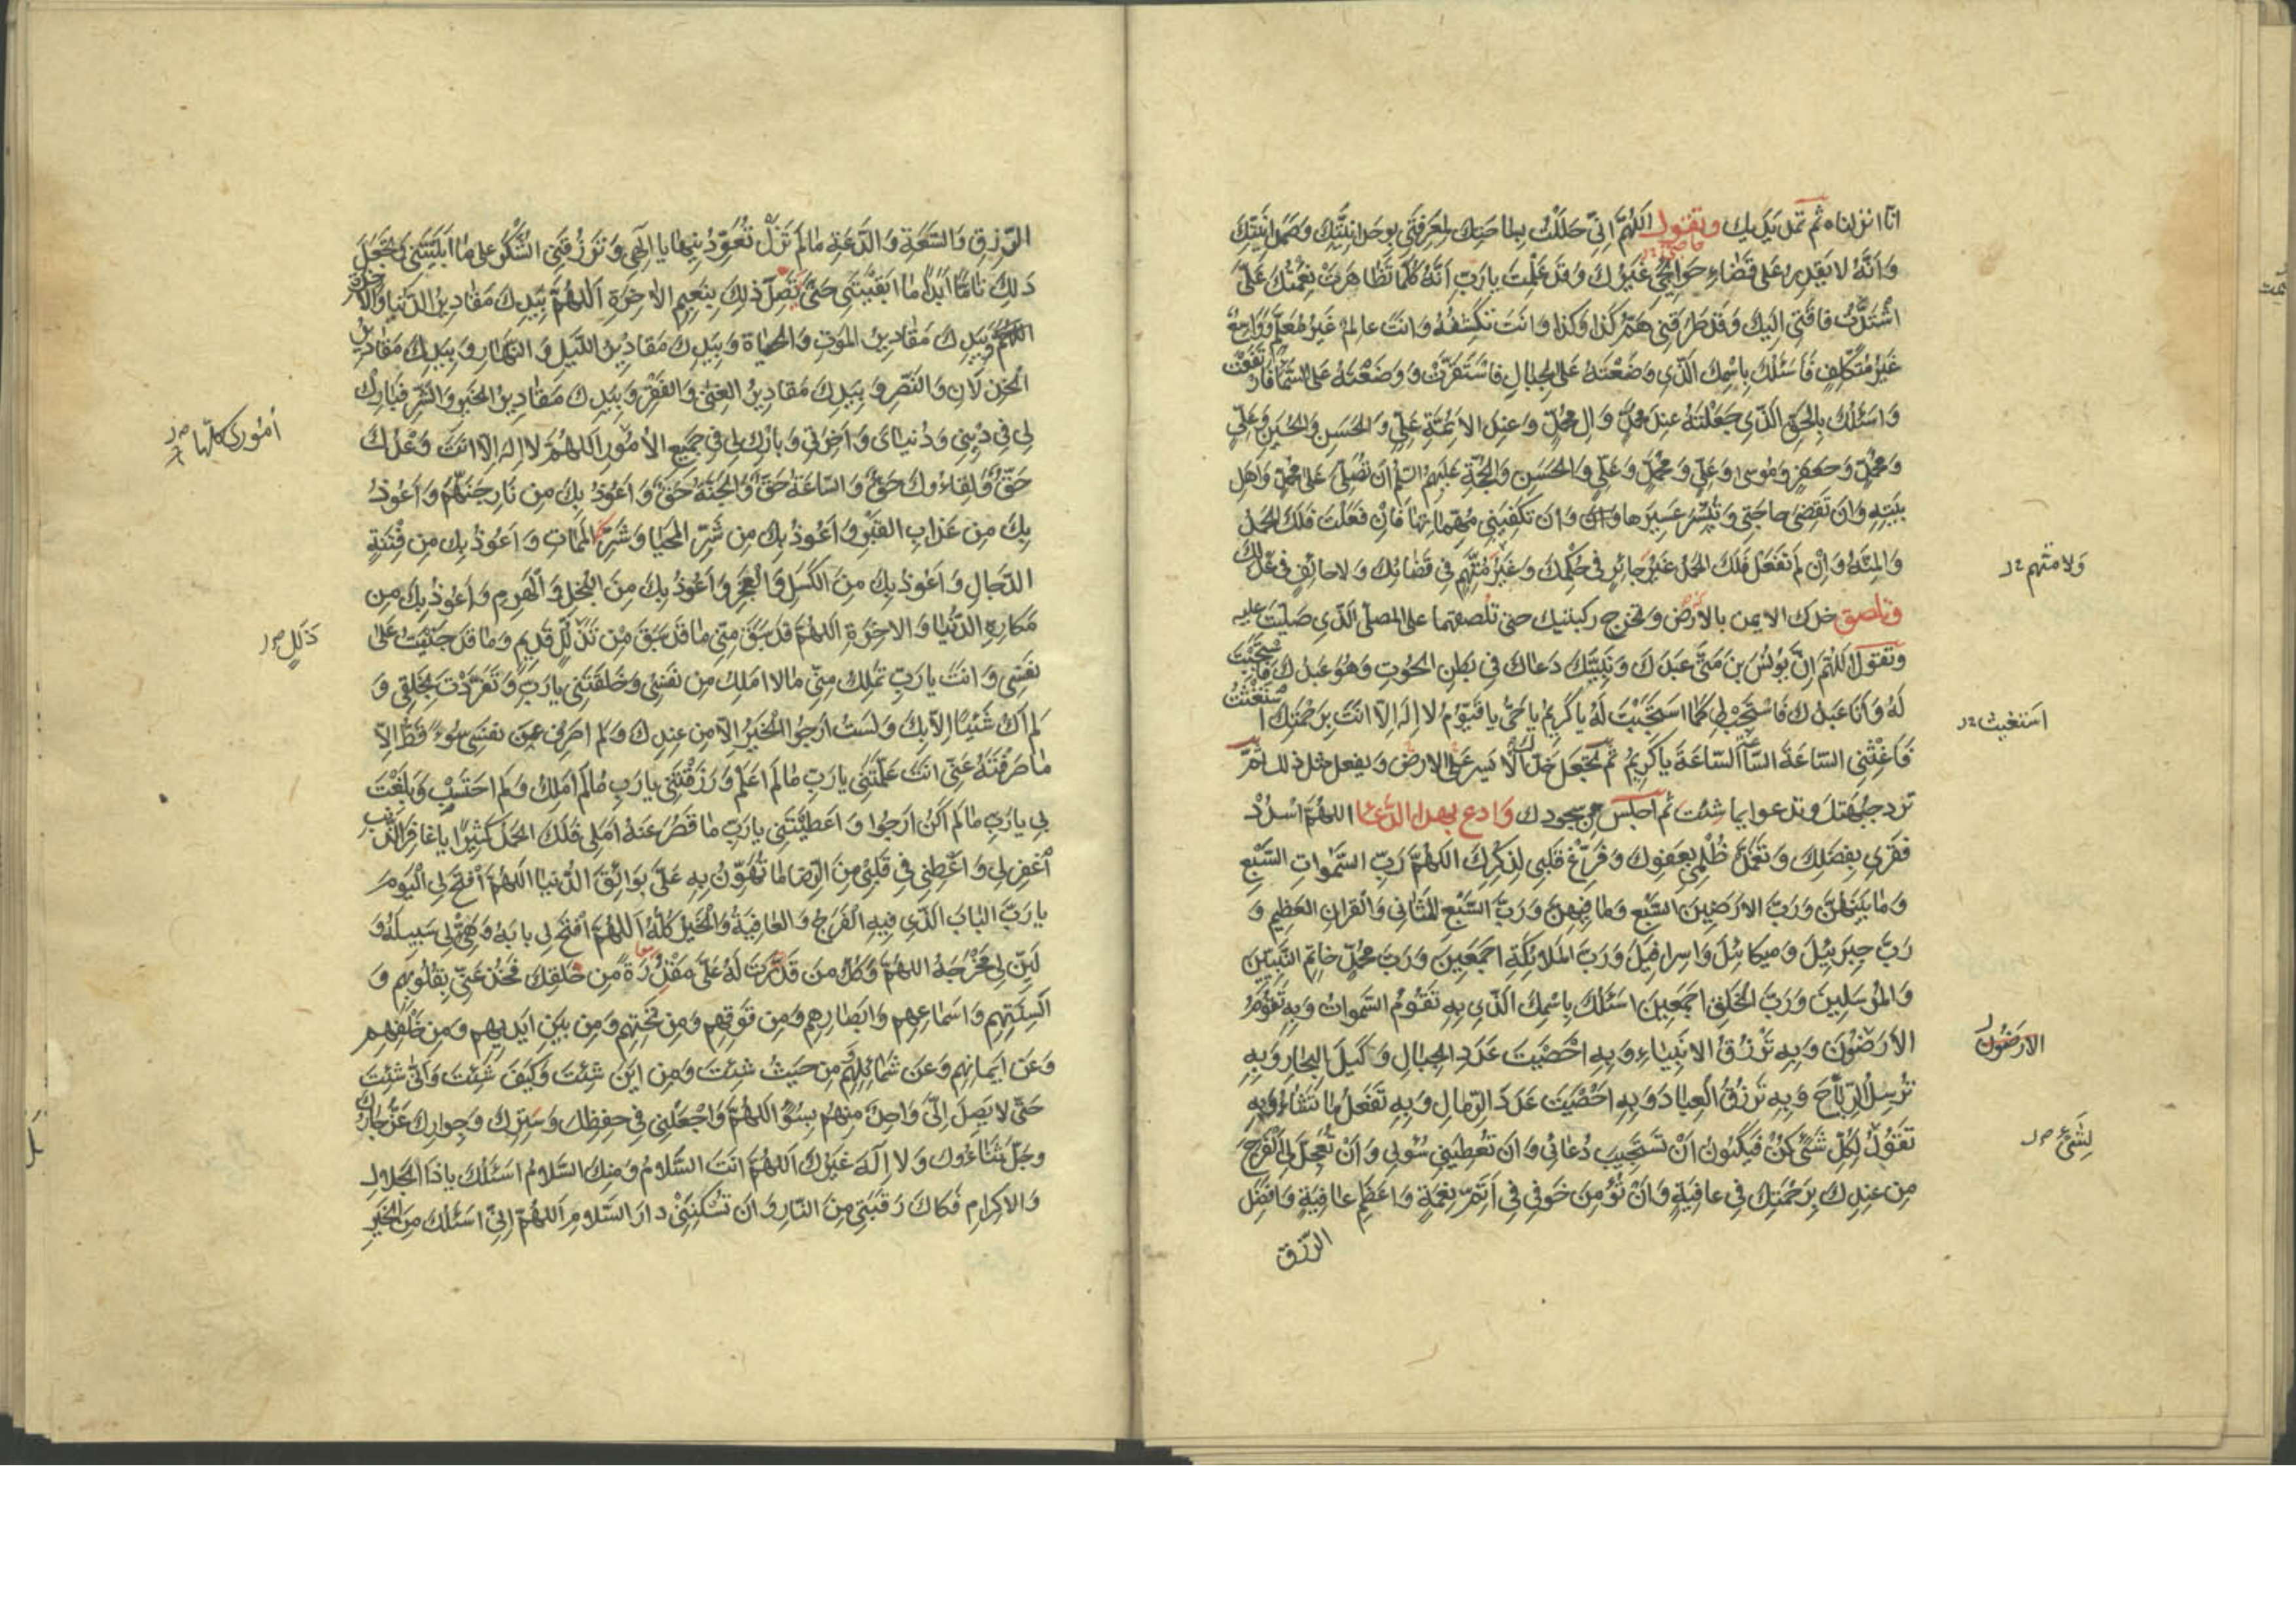 انا انزلناه ثم تمد يديك وتقول اللهم اني حللت بساحتك لمعرفتي بوحدانيتك وصمدانيتك
وانه لا يقدر على قضاء حوائجي غيرك وقد علمت يا رب انه كلما تظاهرت نعمتك علي
اشتدت فاقتي اليك وقد طرقني هم كذا وكذا وانت تكشفه وانت عالم غير معلم وواسع
غير متكلف فاسئلك باسمك الذي وضعته على الجبال فاستقرت ووضعته على السماء فارتفعت
واسئلك بالحق الذي جعلته عند محمد وال محمد وعند الائمة علي والحسن والحسين وعلي
ومحمد وجعفر وموسى وعلي ومحمد وعلي والحسن والحجة عليهم السلم ان تصلي على محمد واهل
بيته وان تقضي حاجتي وتيسر عسيرها وان تكفيني مهماتها فان فعلت فلك الحمد
والمنة وان لم تفعل فلك الحمد غير جائر في حكمك وغير متهم في قضائك ولا حائف في عدلك
ولا متهم
وتلصق خدك الايمن بالارض وتخرج ركبتيك حتى تلصقهما على المصلى الذي صليت عليه
وتقول اللهم ان يونس بن متى عبدك ونبيك دعاك في بطن الحوت وهو عبدك فاستجبت
له وانا عبدك فاستجب لي كما استجبت له يا كريم يا حي يا قيوم لا اله الا انت برحمتك استغثت
استغيث
فاغثني الساعة الساعة الساعة يا كريم ثم تجعل خدك الايسر على الارض ويفعل مثل ذلك ثم
ترد جبهتك وتدعوا بما شئت ثم اجلس من سجودك وادع بهذا الدعا اللهم اسدد
فقري بفضلك وتغمد ظلمي بعفوك وفرغ قلبي لذكرك اللهم رب السموات السبع
وما بينهن ورب الارضين السبع وما فيهن ورب السبع المثاني والقران العظيم و
رب جبرئيل وميكائيل واسرافيل ورب الملائكة اجمعين ورب محمد خاتم النبيين
والمرسلين ورب الخلق اجمعين اسئلك باسمك الذي به تقوم السموات وبه تقوم
الارضون وبه ترزق الانبياء وبه احصيت عدد الجبال وكيل البحار وبه
الارضون
ترسل الرياح وبه ترزق العباد وبه احصيت عدد الرمال وبه تفعل ما تشاء وبه
تقول لكل شئ كن فيكون ان تستجيب دعائي وان تعطيني سؤلي وان تعجل لي الفرج
لشئ
من عندك برحمتك في عافية وان تؤمن خوفي في اتم نعمة واعظم عافية وافضل
الرزق
الرزق والسعة والدعة ما لم تزل تعودنيها يا الهي وترزقني الشكر على ما ابليتني وتجعل
ذلك تاما ابدا ما ابقيتني حتى تصل ذلك بنعيم الاخرة اللهم بيدك مقادير الدنيا والاخرة
اللهم وبيدك مقادير الموت والحياة وبيدك مقادير الليل والنهار وبيدك مقادير
الخذلان والنصر وبيدك مقادير الغنى والفقر وبيدك مقادير الخير والشر فبارك
لي في ديني ودنياي واخرتي وبارك لي في جميع الامور اللهم لا اله الا انت وعدك
اموري كلها
حق ولقاؤك حق والساعة حق والجنة حق واعوذ بك من نار جهنم واعوذ
بك من عذاب القبر واعوذ بك من شر المحيا وشر الممات واعوذ بك من فتنة
الدجال واعوذ بك من الكسل والعجز واعوذ بك من البخل والهرم واعوذ بك من
مكاره الدنيا والاخرة اللهم قد سبق مني ما قد سبق من تذلل قديم وما قد جنيت على
ذلل
نفسي وانت يا رب تملك مني ما لا املك من نفسي وخلقتني يا رب وتفردت بخلقي و
لم اك شيئا الا بك ولست ارجوا الخير الا من عندك ولم اصرف عن نفسي سوء قط الا
ما صرفته عني انت علمتني يا رب ما لم اعلم ورزقتني يا رب ما لم املك ولم احتسب وبلغت
بي يا رب ما لم اكن ارجوا واعطيتني يا رب ما قصر عنه املي فلك الحمد كثيرا يا غافر الذنب
اغفر لي واعطني في قلبي من الرضا ما تهون به علي بوائق الدنيا اللهم افتح لي اليوم
يا رب الباب الذي فيه الفرج والعافية والخير كله اللهم افتح لي بابه وهيئ لي سبيله و
لين لي مخرجه اللهم وكل من قدرت له علي مقدرة من خلقك فخذ عني بقلوبهم و
السنتهم واسماعهم وابصارهم ومن فوقهم ومن تحتهم ومن بين ايديهم ومن خلفهم
وعن ايمانهم وعن شمائلهم من حيث شئت ومن اين شئت وكيف شئت وانى شئت
حتى لا يصل الي واحد منهم بسوء اللهم واجعلني في حفظك وسترك وجوارك عز جارك
وجل ثناءوك ولا اله غيرك اللهم انت السلام ومنك السلام اسئلك يا ذا الجلال
والاكرام فكاك رقبتي من النار وان تسكنني دار السلام اللهم اني اسئلك من الخير